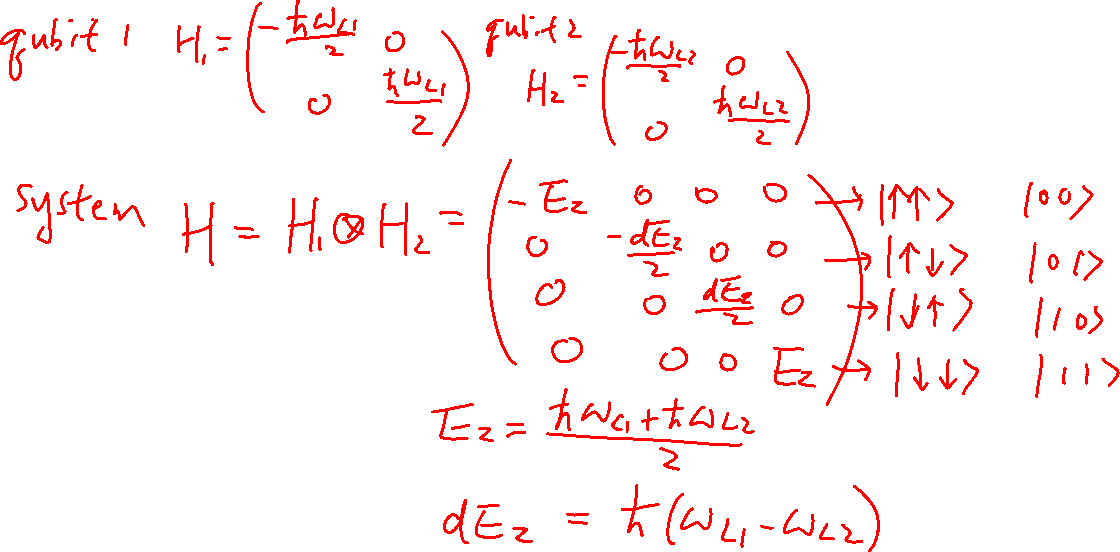 qubit 1 H₁ = ( -ħω_L1/2 0 ; 0 ħω_L1/2 ) qubit 2 H₂ = ( -ħω_L2/2 0 ; 0 ħω_L2/2 )
system H = H₁ ⊗ H₂ = ( -E_z 0 0 0 ; 0 -dE_z/2 0 0 ; 0 0 dE_z/2 0 ; 0 0 0 E_z )
→ |↑↑> |00>
→ |↑↓> |01>
→ |↓↑> |10>
→ |↓↓> |11>
E_z = (ħω_L1 + ħω_L2)/2
dE_z = ħ(ω_L1 - ω_L2)